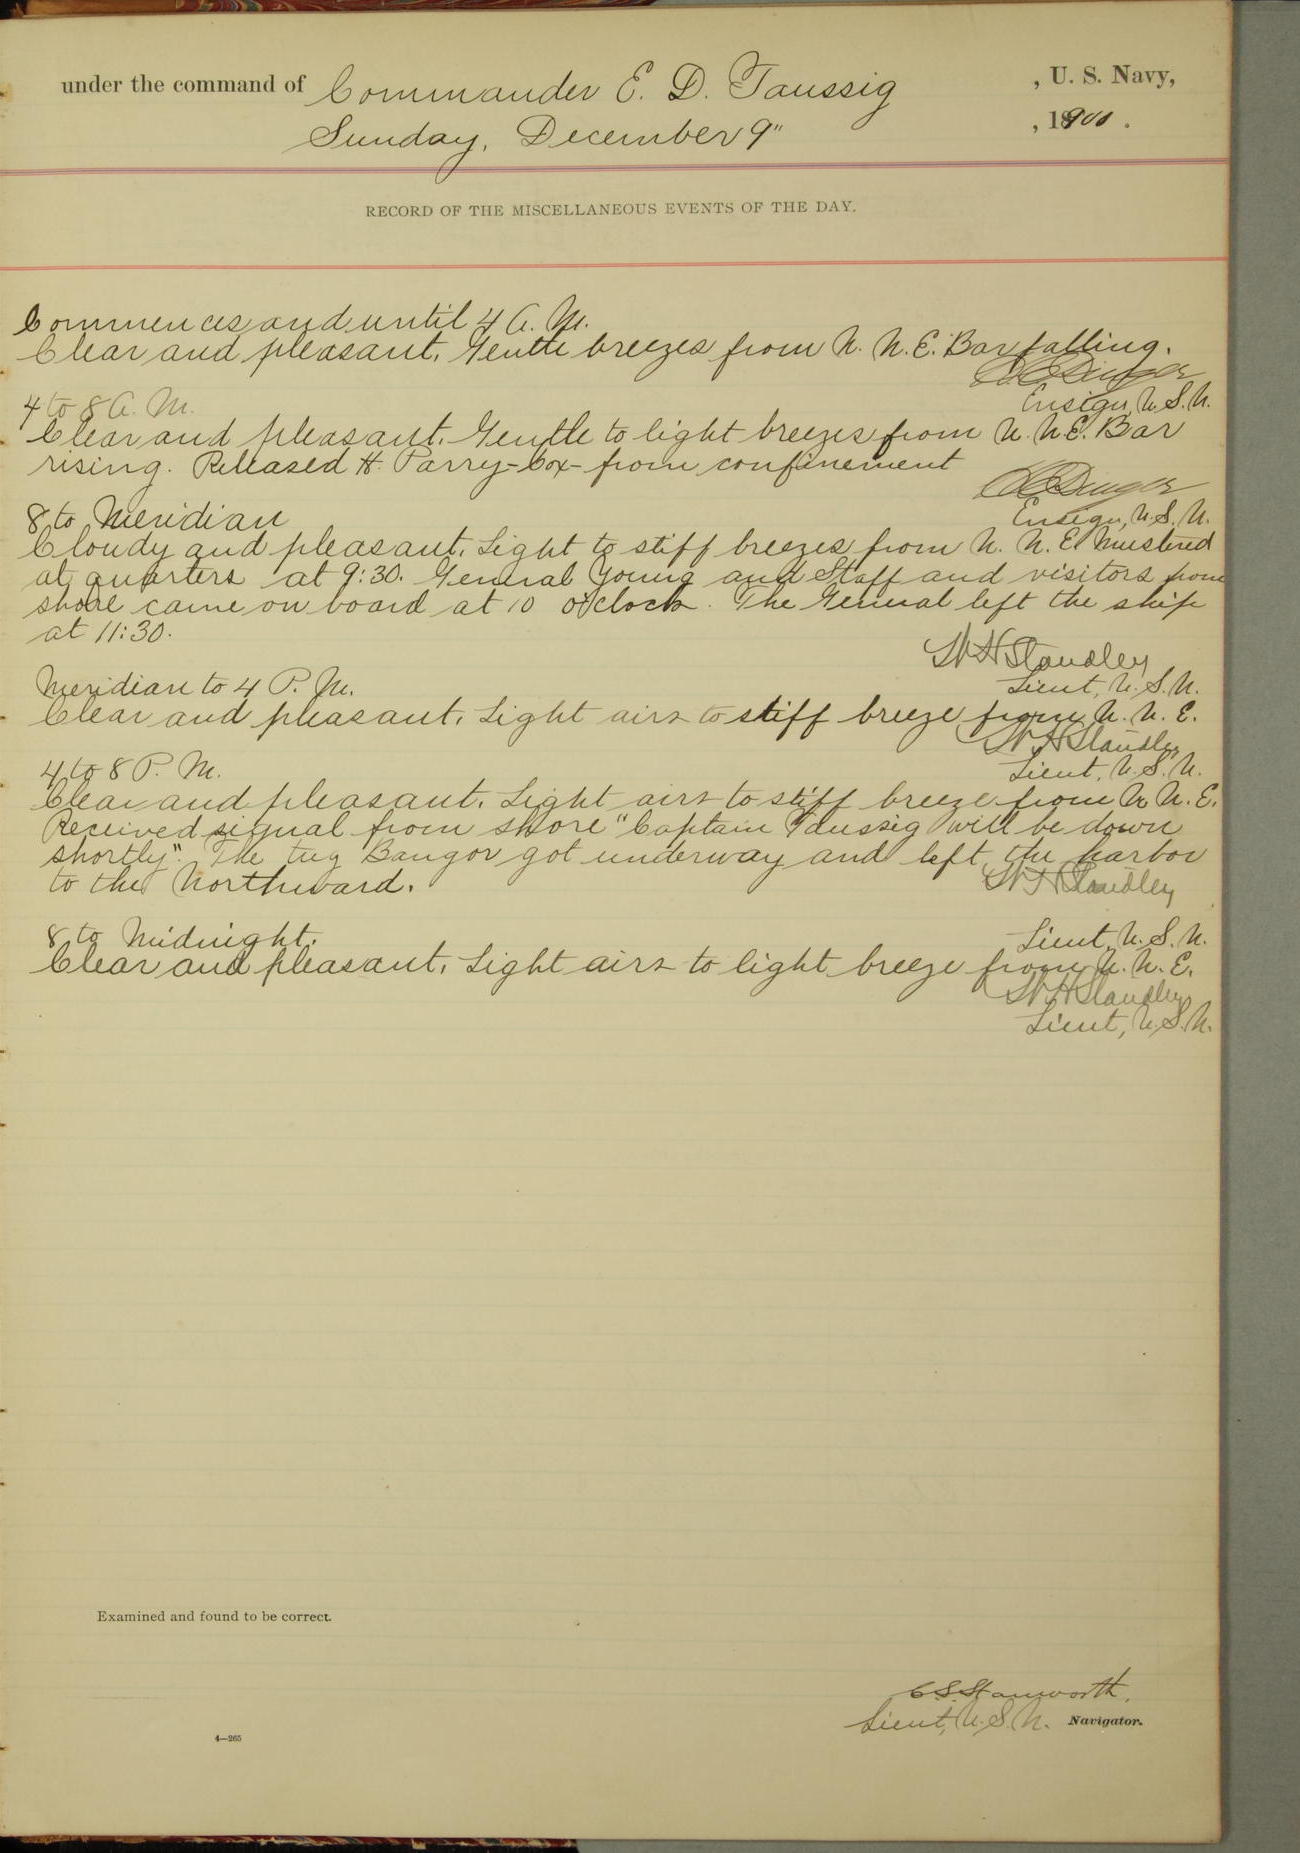 under the command of Commander E. D. Taussig, U. S. Navy,
Sunday, December 9", 1900.
RECORD OF THE MISCELLANEOUS EVENTS OF THE DAY.
Commences and until 4 A. M.
Clear and pleasant. Gentle breezes from N. N. E. Bar falling.
Ensign, U. S. N.
4 to 8 A. M.
Clear and pleasant. Gentle to light breezes from N. N. E. Bar
rising. Released H. Parry-Cox- from confinement
Ensign, U. S. N.
8 to Meridian
Cloudy and pleasant. Light to stiff breezes from N. N. E. Mustered
at quarters at 9:30. General Young and Staff and visitors from
shore came on board at 10 o'clock. The General left the ship
at 11:30.
W H Standley
Lieut, U. S. N.
Meridian to 4 P. M.
Clear and pleasant. Light airs to stiff breeze from N. N. E.
W H Standley
Lieut, U. S. N.
4 to 8 P. M.
Clear and pleasant. Light airs to stiff breeze from N. N. E.
Received signal from shore "Captain Taussig will be down
shortly". The tug Bangor got underway and left the harbor
to the Northward.
W H Standley
Lieut, U. S. N.
8 to Midnight.
Clear and pleasant. Light airs to light breeze from N. N. E.
W H Standley
Lieut, U. S. N.
Examined and found to be correct.
C S Stanworth,
Lieut, U. S. N. Navigator.
4—265